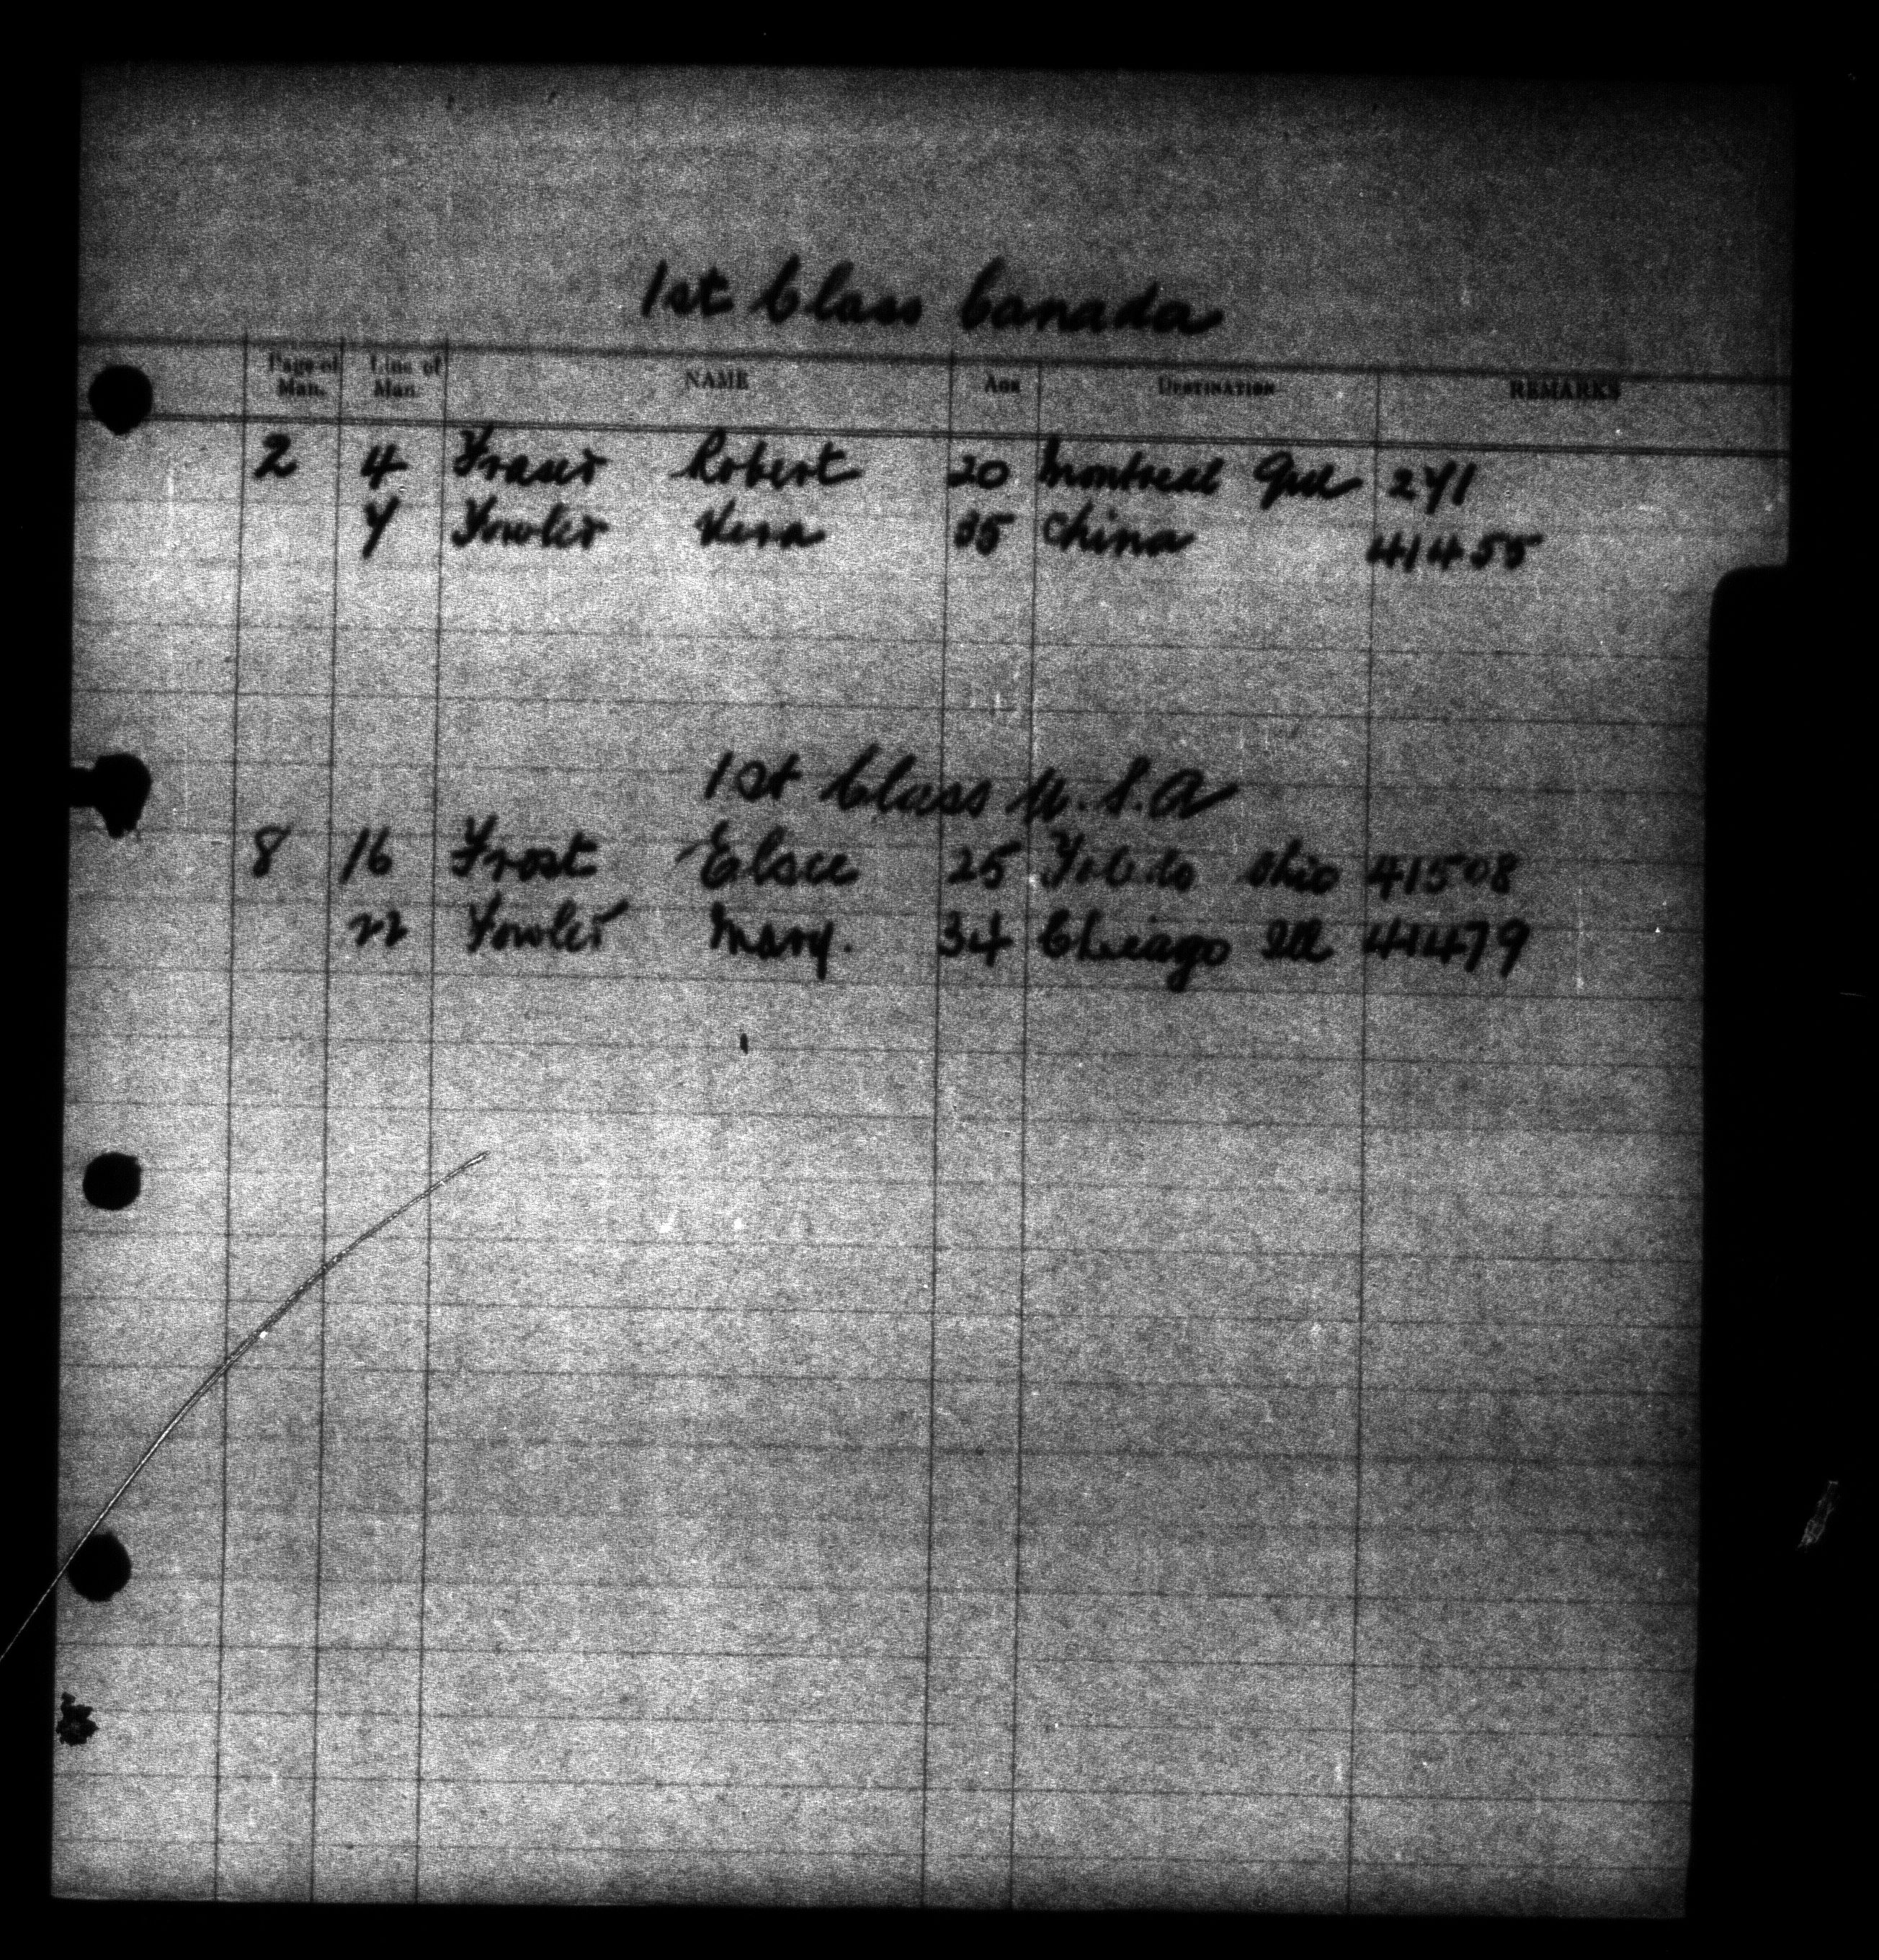 1st Class Canada
Page of Man. Line of Man. NAME AGE DESTINATION REMARKS
2 4 Fraser Robert 20 Montreal Que 271
7 Fowler Vera 35 China 41455
1st Class U.S.A
8 16 Frost Elsie 25 Toledo Ohio 41508
22 Fowler Mary. 34 Chicago Ill 41479